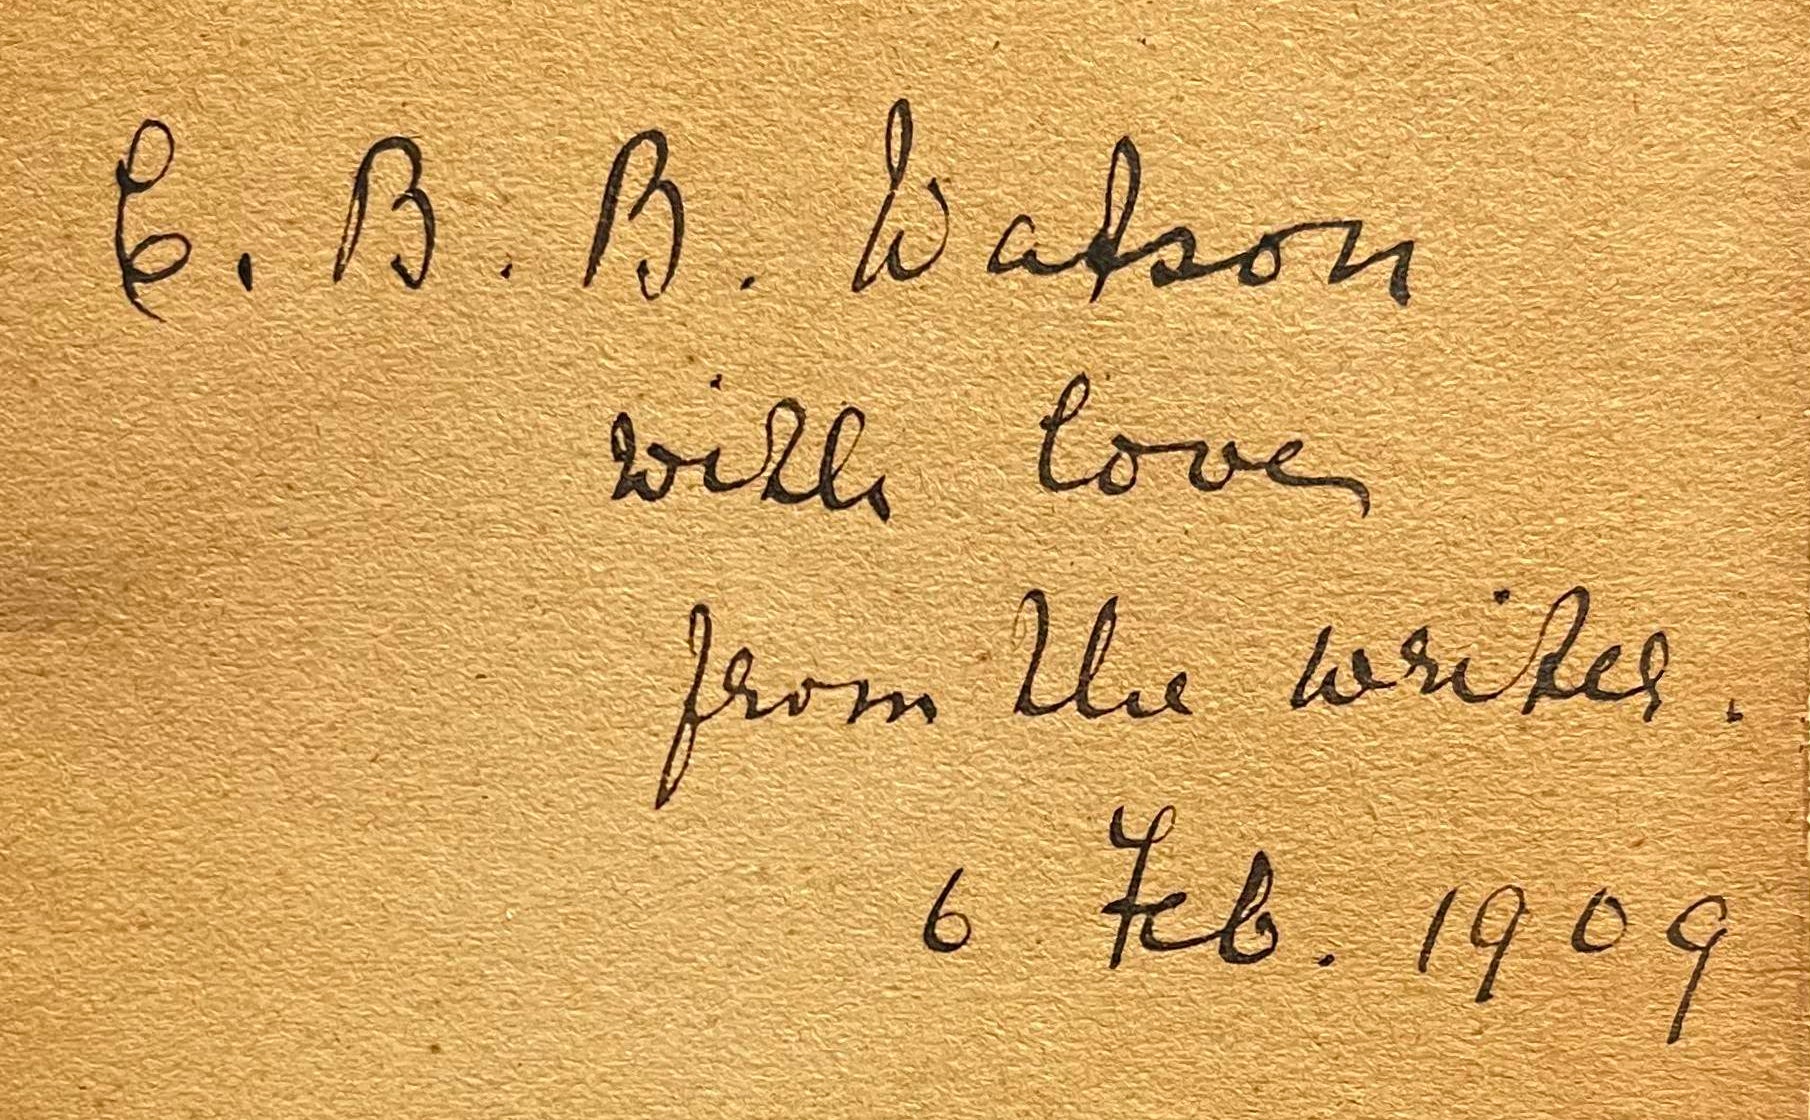 E. B. B. Watson
with love
from the writer.
6 Feb. 1909